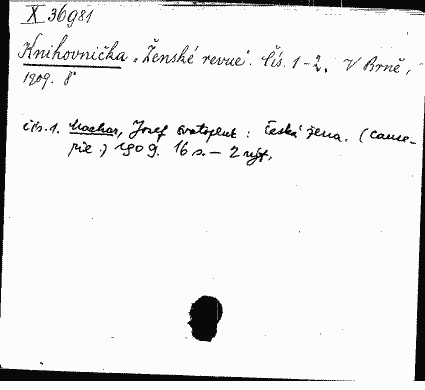 X 36981
Knihovnička „Ženské revue". Čís. 1-2. V Brně,
1909. 8°
čís. 1. Machar, Josef Svatopluk: Česká žena. (Cause-
rie.) 1909. 16 s. — 2 výt.